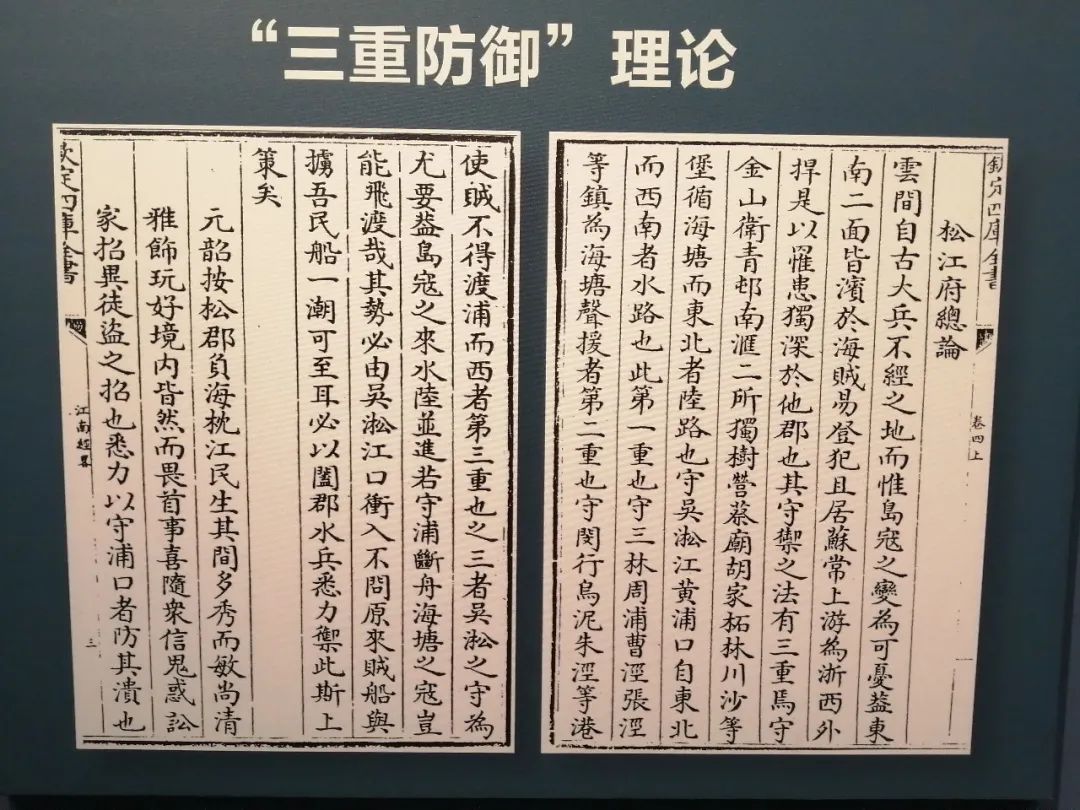 “三重防御”理论
欽定四庫全書
卷四上
松江府總論
雲間自古大兵不經之地而惟島寇之變為可憂葢東
南二面皆濱於海賊易登犯且居蘇常上游為浙西外
捍是以罹患獨深於他郡也其守禦之法有三重焉守
金山衛青邨南滙二所獨樹營蔡廟胡家柘林川沙等
堡循海塘而東北者陸路也守吳淞江黃浦口自東北
而西南者水路也此第一重也守三林周浦曹涇張涇
等鎮為海塘聲援者第二重也守閔行烏泥朱涇等港
使賊不得渡浦而西者第三重也之三者吳淞之守為
尤要葢島寇之來水陸並進若守浦斷舟海塘之寇豈
能飛渡哉其勢必由吳淞江口衝入不問原來賊船與
擄吾民船一潮可至耳必以闔郡水兵悉力禦此斯上
策矣
元韶按松郡負海枕江民生其間多秀而敏尚清
雅飾玩好境内皆然而畏首事喜隨衆信鬼惑訟
家招異徒盜之招也悉力以守浦口者防其潰也
欽定四庫全書
江南經畧
三